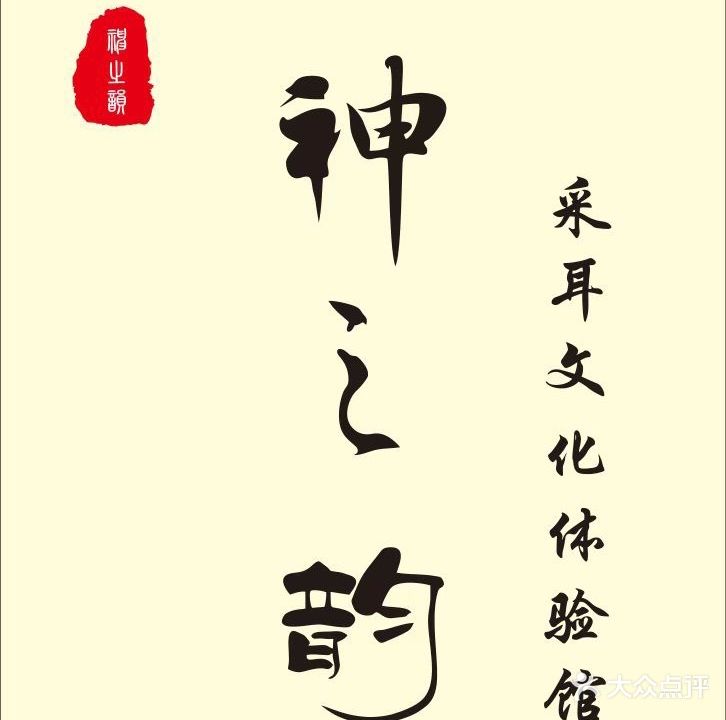 神之韻
神之韵
采耳文化体验馆
大众点评